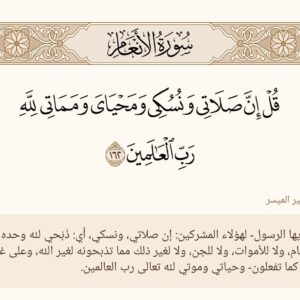 سُورَةُ الأَنْعَامِ
قُلْ إِنَّ صَلَاتِى وَنُسُكِى وَمَحْيَاىَ وَمَمَاتِى لِلَّهِ
رَبِّ ٱلْعَٰلَمِينَ ١٦٢
الميسر
الرسول- لهؤلاء المشركين: إن صلاتي، ونسكي، أي: ذَبْحي لله وحده
ولا للأموات، ولا للجن، ولا لغير ذلك مما تذبحونه لغير الله، وعلى
كما تفعلون- وحياتي وموتي لله تعالى رب العالمين.